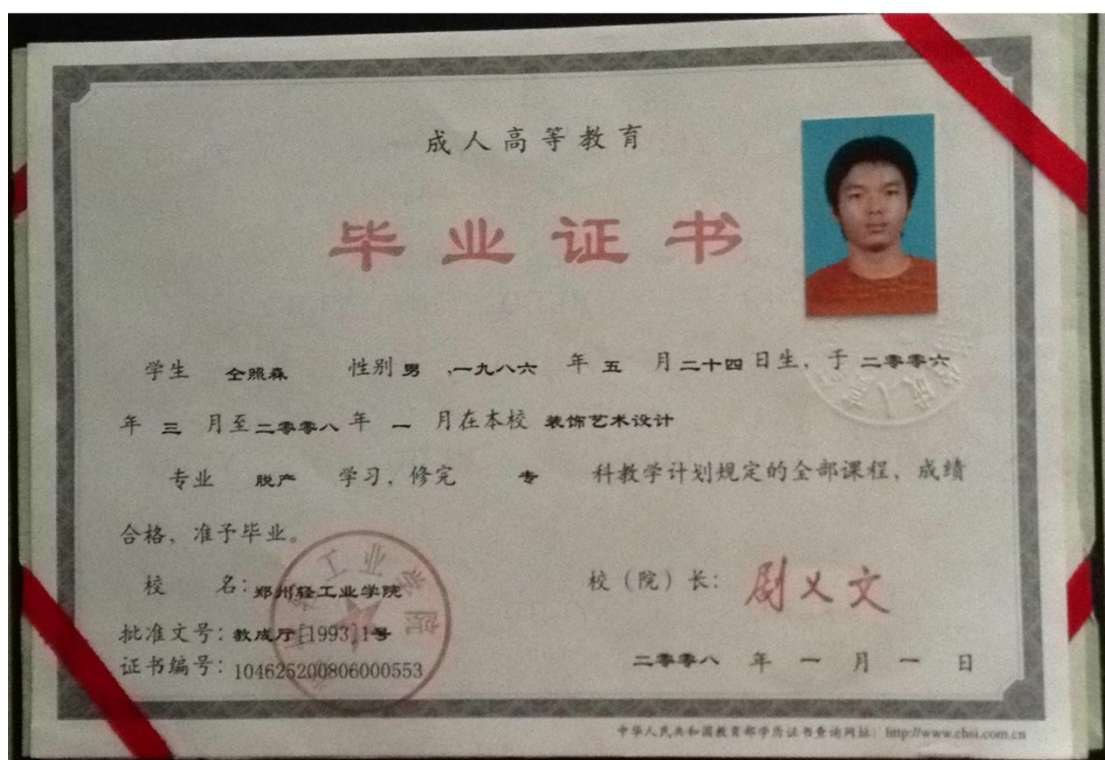 成人高等教育
毕业证书
学生 仝照森 性别 男 ,一九八六 年 五 月 二十四 日生，于 二零零六
年 三 月至 二零零八 年 一 月在本校 装饰艺术设计
专业 脱产 学习，修完 专 科教学计划规定的全部课程，成绩
合格，准予毕业。
校 名：郑州轻工业学院
校（院）长：
义文
批准文号：教成厅[1993]1号
证书编号：104625200806000553
二零零八 年 一 月 一 日
中华人民共和国教育部学历证书查询网址：http://www.chsi.com.cn